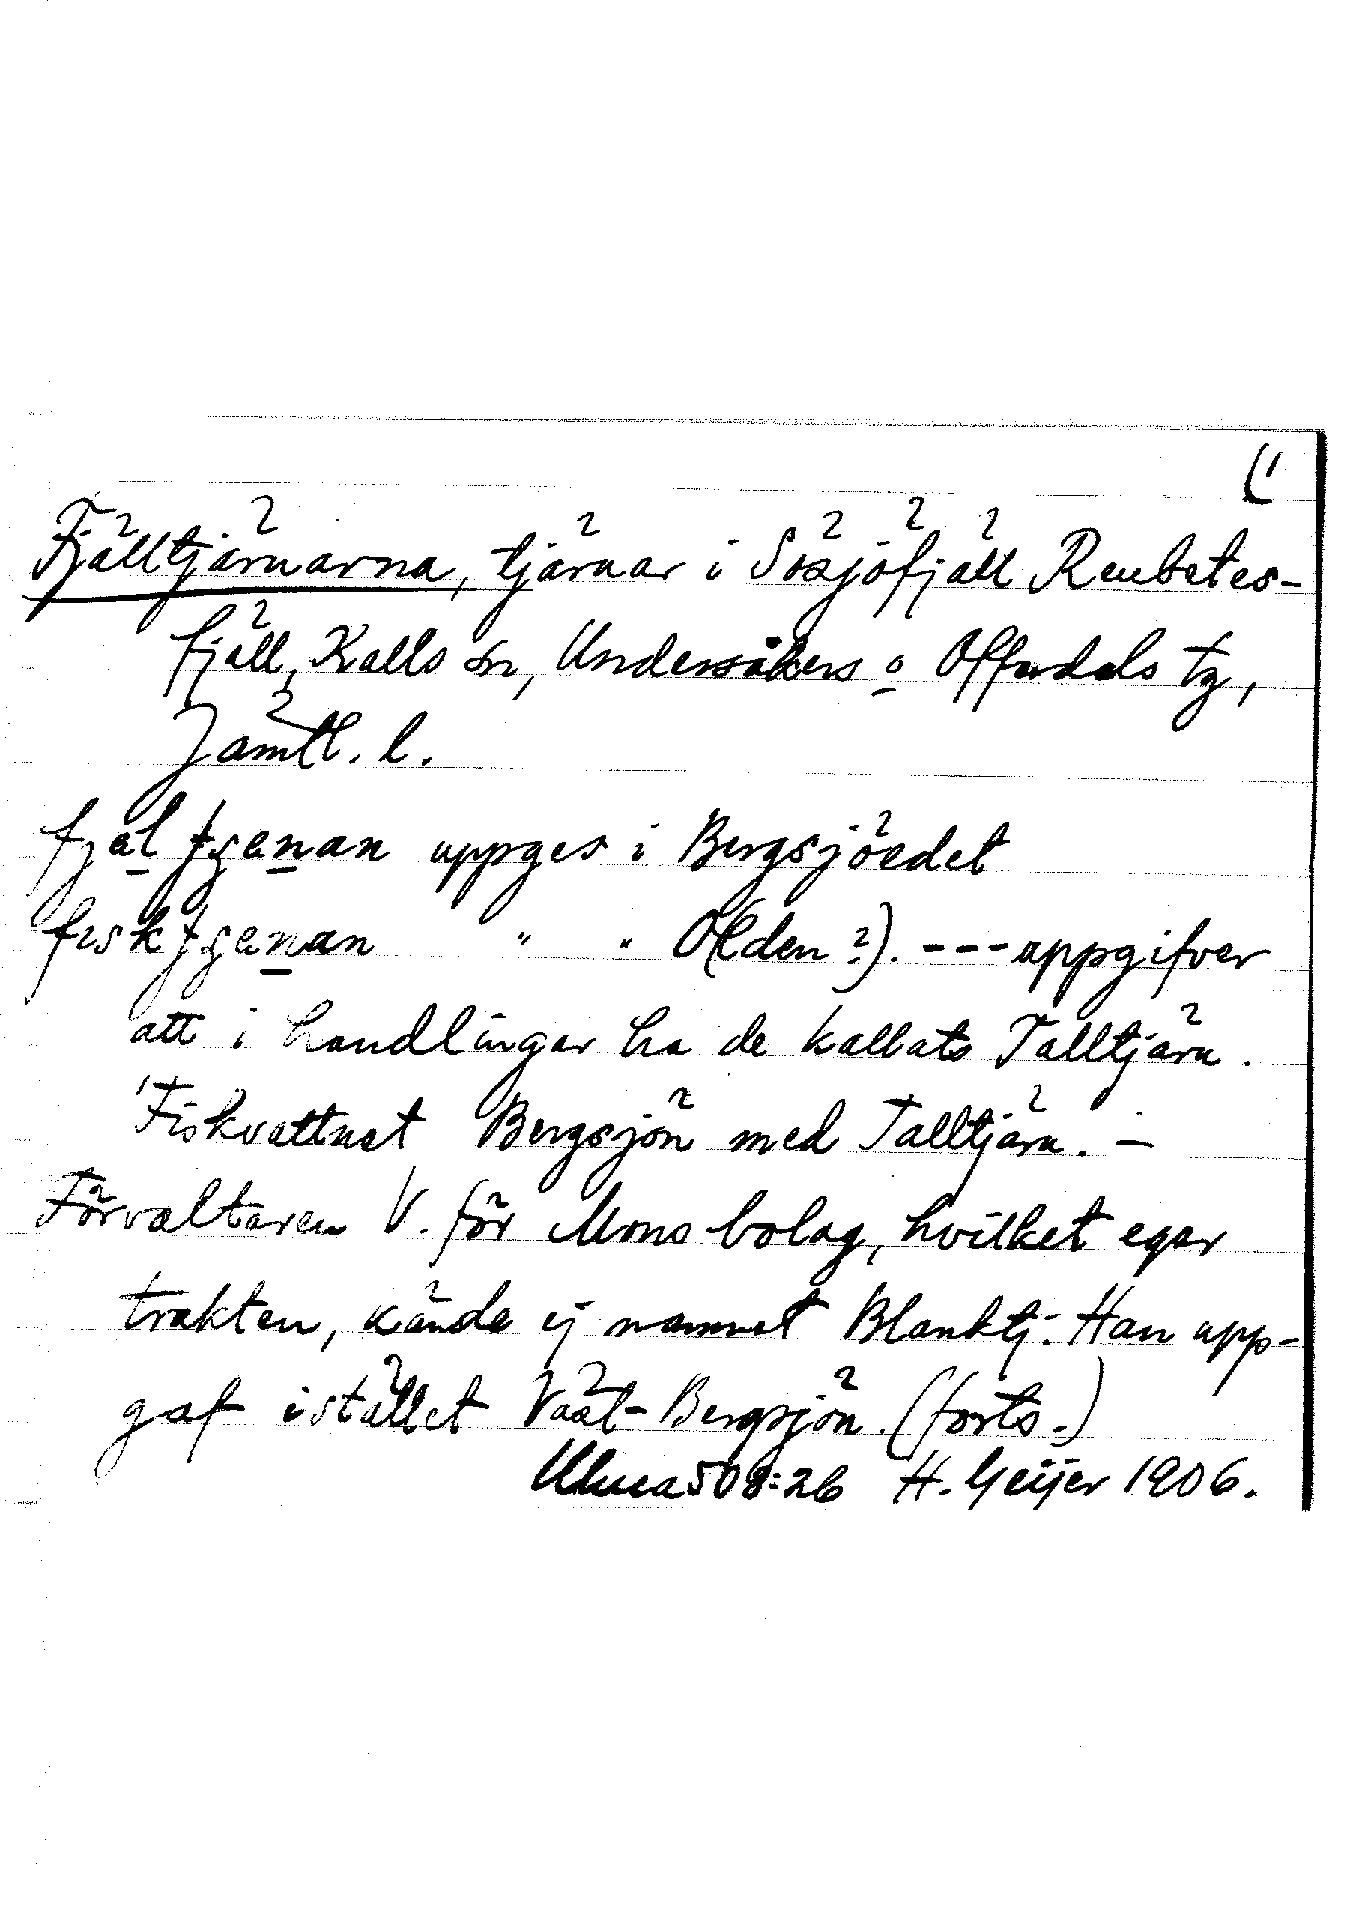 (1
Fjälltjärnarna, tjärnar i Sösjöfjäll Renbetes-
fjäll, Kalls sn, Undersåkers o Offerdals tg,
Jämtl. l.
uppges i Bergsjöedet
" " Olden?). --- uppgifver
att i handlingar ha de kallats Talltjärn.
'Fiskvattnet Bergsjön med Talltjärn. —
Förvaltaren V. för Mons bolag, hvilket eger
trakten, kände ej namnet Blanktj. Han upp-
gaf istället Väst-Bergsjön. (forts.)
Uluea 508:26 H. Geijer 1906.